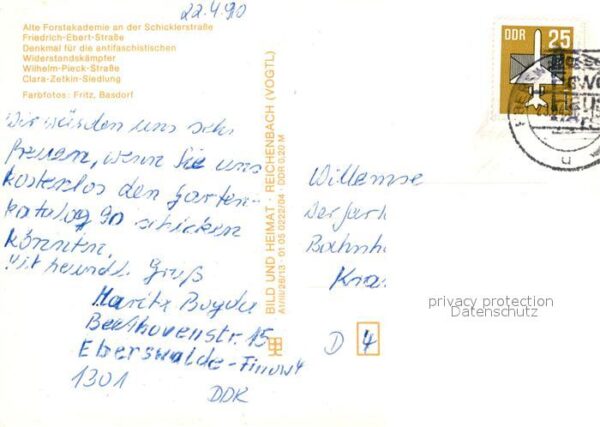 22.4.90
Alte Forstakademie an der Schicklerstraße
Friedrich-Ebert-Straße
Denkmal für die antifaschistischen
Widerstandskämpfer
Wilhelm-Pieck-Straße
Clara-Zetkin-Siedlung
Farbfotos: Fritz, Basdorf
Wir würden uns sehr
freuen, wenn Sie uns
kostenlos den Garten-
katalog 90 schicken
könnten.
Mit freundl. Gruß
Beethovenstr. 15
Eberswalde-Finow 4
1301
DDR
BILD UND HEIMAT · REICHENBACH (VOGTL)
A1/III/26/13 · 01 05 0222/04 · DDR 0,20 M
DDR 25
Willemse
Bahnh
D 4
privacy protection
Datenschutz